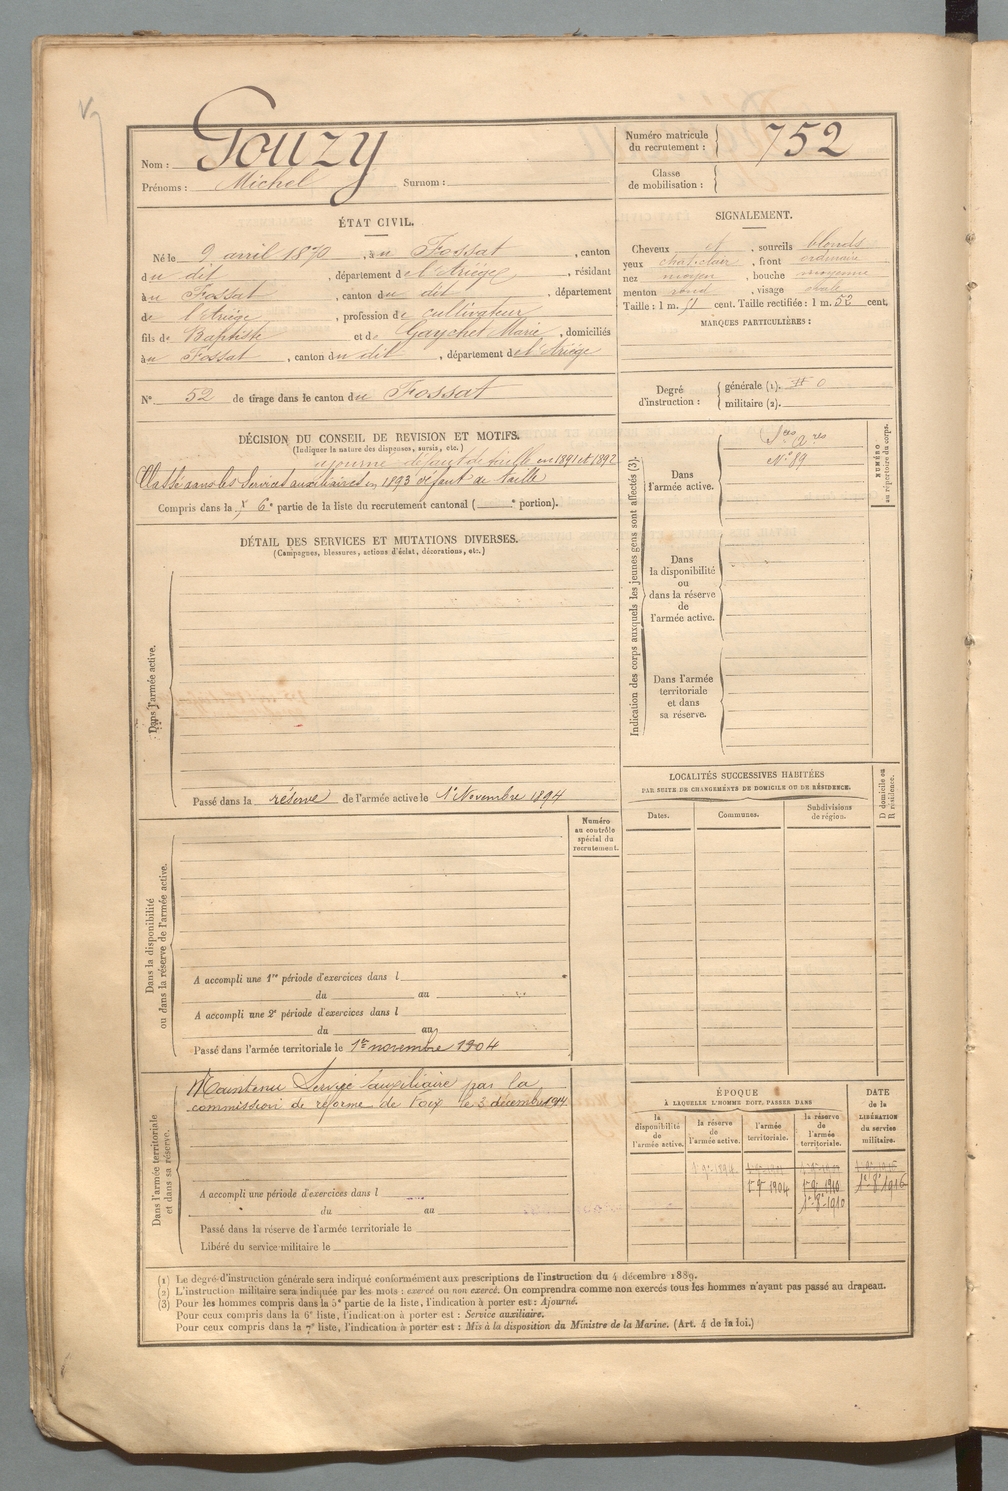 Nom : Gouzy
Prénoms : Michel Surnom :
Numéro matricule du recrutement : 752
Classe de mobilisation :
ÉTAT CIVIL.
Né le 9 avril 1870, à u Fossat, canton
du dit, département de l'Ariège, résidant
à u Fossat, canton du dit, département
de l'Ariège, profession de cultivateur
fils de Baptiste et de Gaychet Marie, domiciliés
à u Fossat, canton du dit, département de l'Ariège
N° 52 de tirage dans le canton du Fossat
DÉCISION DU CONSEIL DE REVISION ET MOTIFS.
(Indiquer la nature des dispenses, sursis, etc.)
ajourné défaut de taille en 1891 et 1892
Classé dans les Services auxiliaires en 1893 défaut de taille
Compris dans la 6e partie de la liste du recrutement cantonal ( e portion).
DÉTAIL DES SERVICES ET MUTATIONS DIVERSES.
(Campagnes, blessures, actions d'éclat, décorations, etc.)
Dans l'armée active.
Passé dans la réserve de l'armée active le 1er Novembre 1894
Numéro au contrôle spécial du recrutement.
Dans la disponibilité ou dans la réserve de l'armée active.
A accompli une 1re période d'exercices dans l
du au
A accompli une 2e période d'exercices dans l
du au
Passé dans l'armée territoriale le 1er novembre 1904
Dans l'armée territoriale et dans sa réserve.
Maintenu Service auxiliaire par la
commission de réforme de Foix le 3 décembre 1914
A accompli une période d'exercices dans l
du au
Passé dans la réserve de l'armée territoriale le
Libéré du service militaire le
SIGNALEMENT.
Cheveux N, sourcils blonds
yeux chat. clair, front ordinaire
nez moyen, bouche moyenne
menton rond, visage ovale
Taille : 1 m. 51 cent. Taille rectifiée : 1 m. 52 cent.
MARQUES PARTICULIÈRES :
Degré d'instruction : générale (1). 0
militaire (2).
Indication des corps auxquels les jeunes gens sont affectés (3).
NUMÉRO au répertoire du corps.
Dans l'armée active.
N° 89
Dans la disponibilité ou dans la réserve de l'armée active.
Dans l'armée territoriale et dans sa réserve.
LOCALITÉS SUCCESSIVES HABITÉES
PAR SUITE DE CHANGEMENTS DE DOMICILE OU DE RÉSIDENCE.
Dates. Communes. Subdivisions de région. D domicile ou R résidence.
ÉPOQUE
À LAQUELLE L'HOMME DOIT PASSER DANS
la disponibilité de l'armée active. la réserve de l'armée active. l'armée territoriale. la réserve de l'armée territoriale. DATE de la LIBÉRATION du service militaire.
1 9e 1894
1er 9e 1904 1er 9e 1910 1er 8e 1916
1er 8e 1910
(1) Le degré d'instruction générale sera indiqué conformément aux prescriptions de l'instruction du 4 décembre 1889.
(2) L'instruction militaire sera indiquée par les mots : exercé ou non exercé. On comprendra comme non exercés tous les hommes n'ayant pas passé au drapeau.
(3) Pour les hommes compris dans la 5e partie de la liste, l'indication à porter est : Ajourné.
Pour ceux compris dans la 6e liste, l'indication à porter est : Service auxiliaire.
Pour ceux compris dans la 7e liste, l'indication à porter est : Mis à la disposition du Ministre de la Marine. (Art. 4 de la loi.)